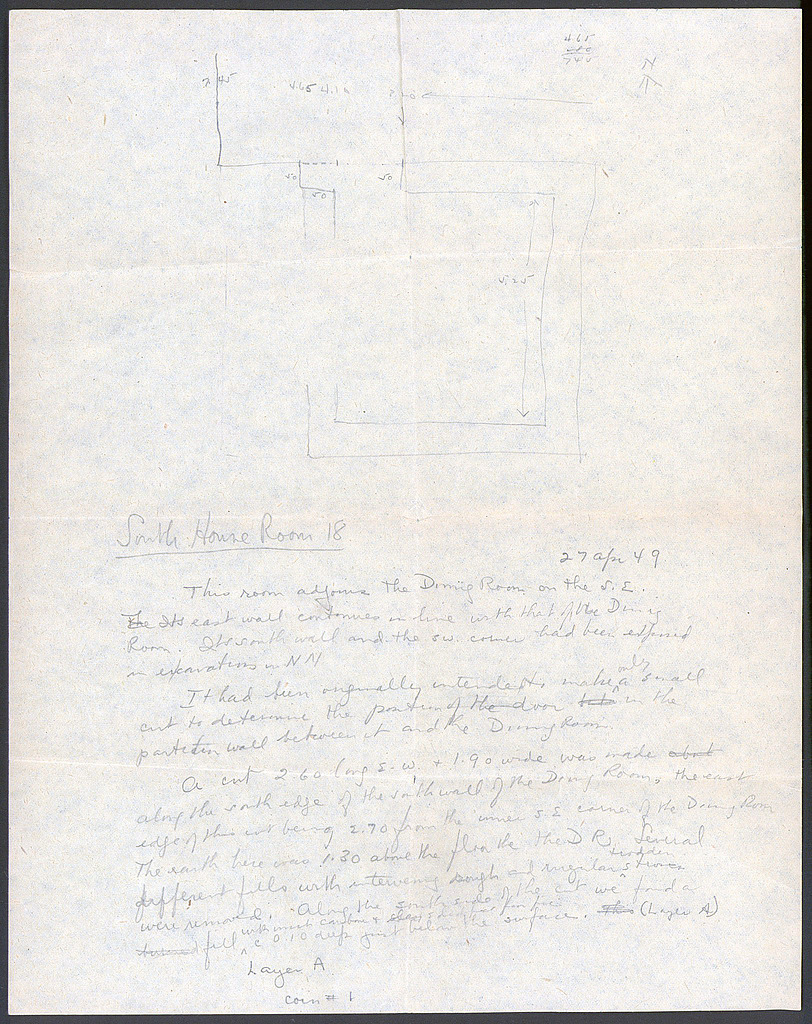 465
280
745
N
7.45
4.65 4.10
2.80
50
50
50
5.25
South House Room 18
27 Apr 49
This room adjoins the Dining Room on the S.E.
The Its east wall continues in line with that of the Dining
Room. Its south wall and the sw. corner had been exposed
in excavations in NN
It had been originally intended to make only a small
cut to determine the position of the door in the
partition wall between it and the Dining Room.
A cut 2.60 long S-W, + 1.90 wide was made about
along the south edge of the south wall of the Dining Room, the east
edge of this cut being 2.70 from the inner S.E. corner of the Dining Room
The earth here was 1.30 above the floor the the D R. Several
different fills with intervening rough and irregular
were removed. Along the south side of the cut we found a
burned fill with much carbon + from fire
c 0.10 deep just below the surface. This (Layer A)
Layer A
coin # 1